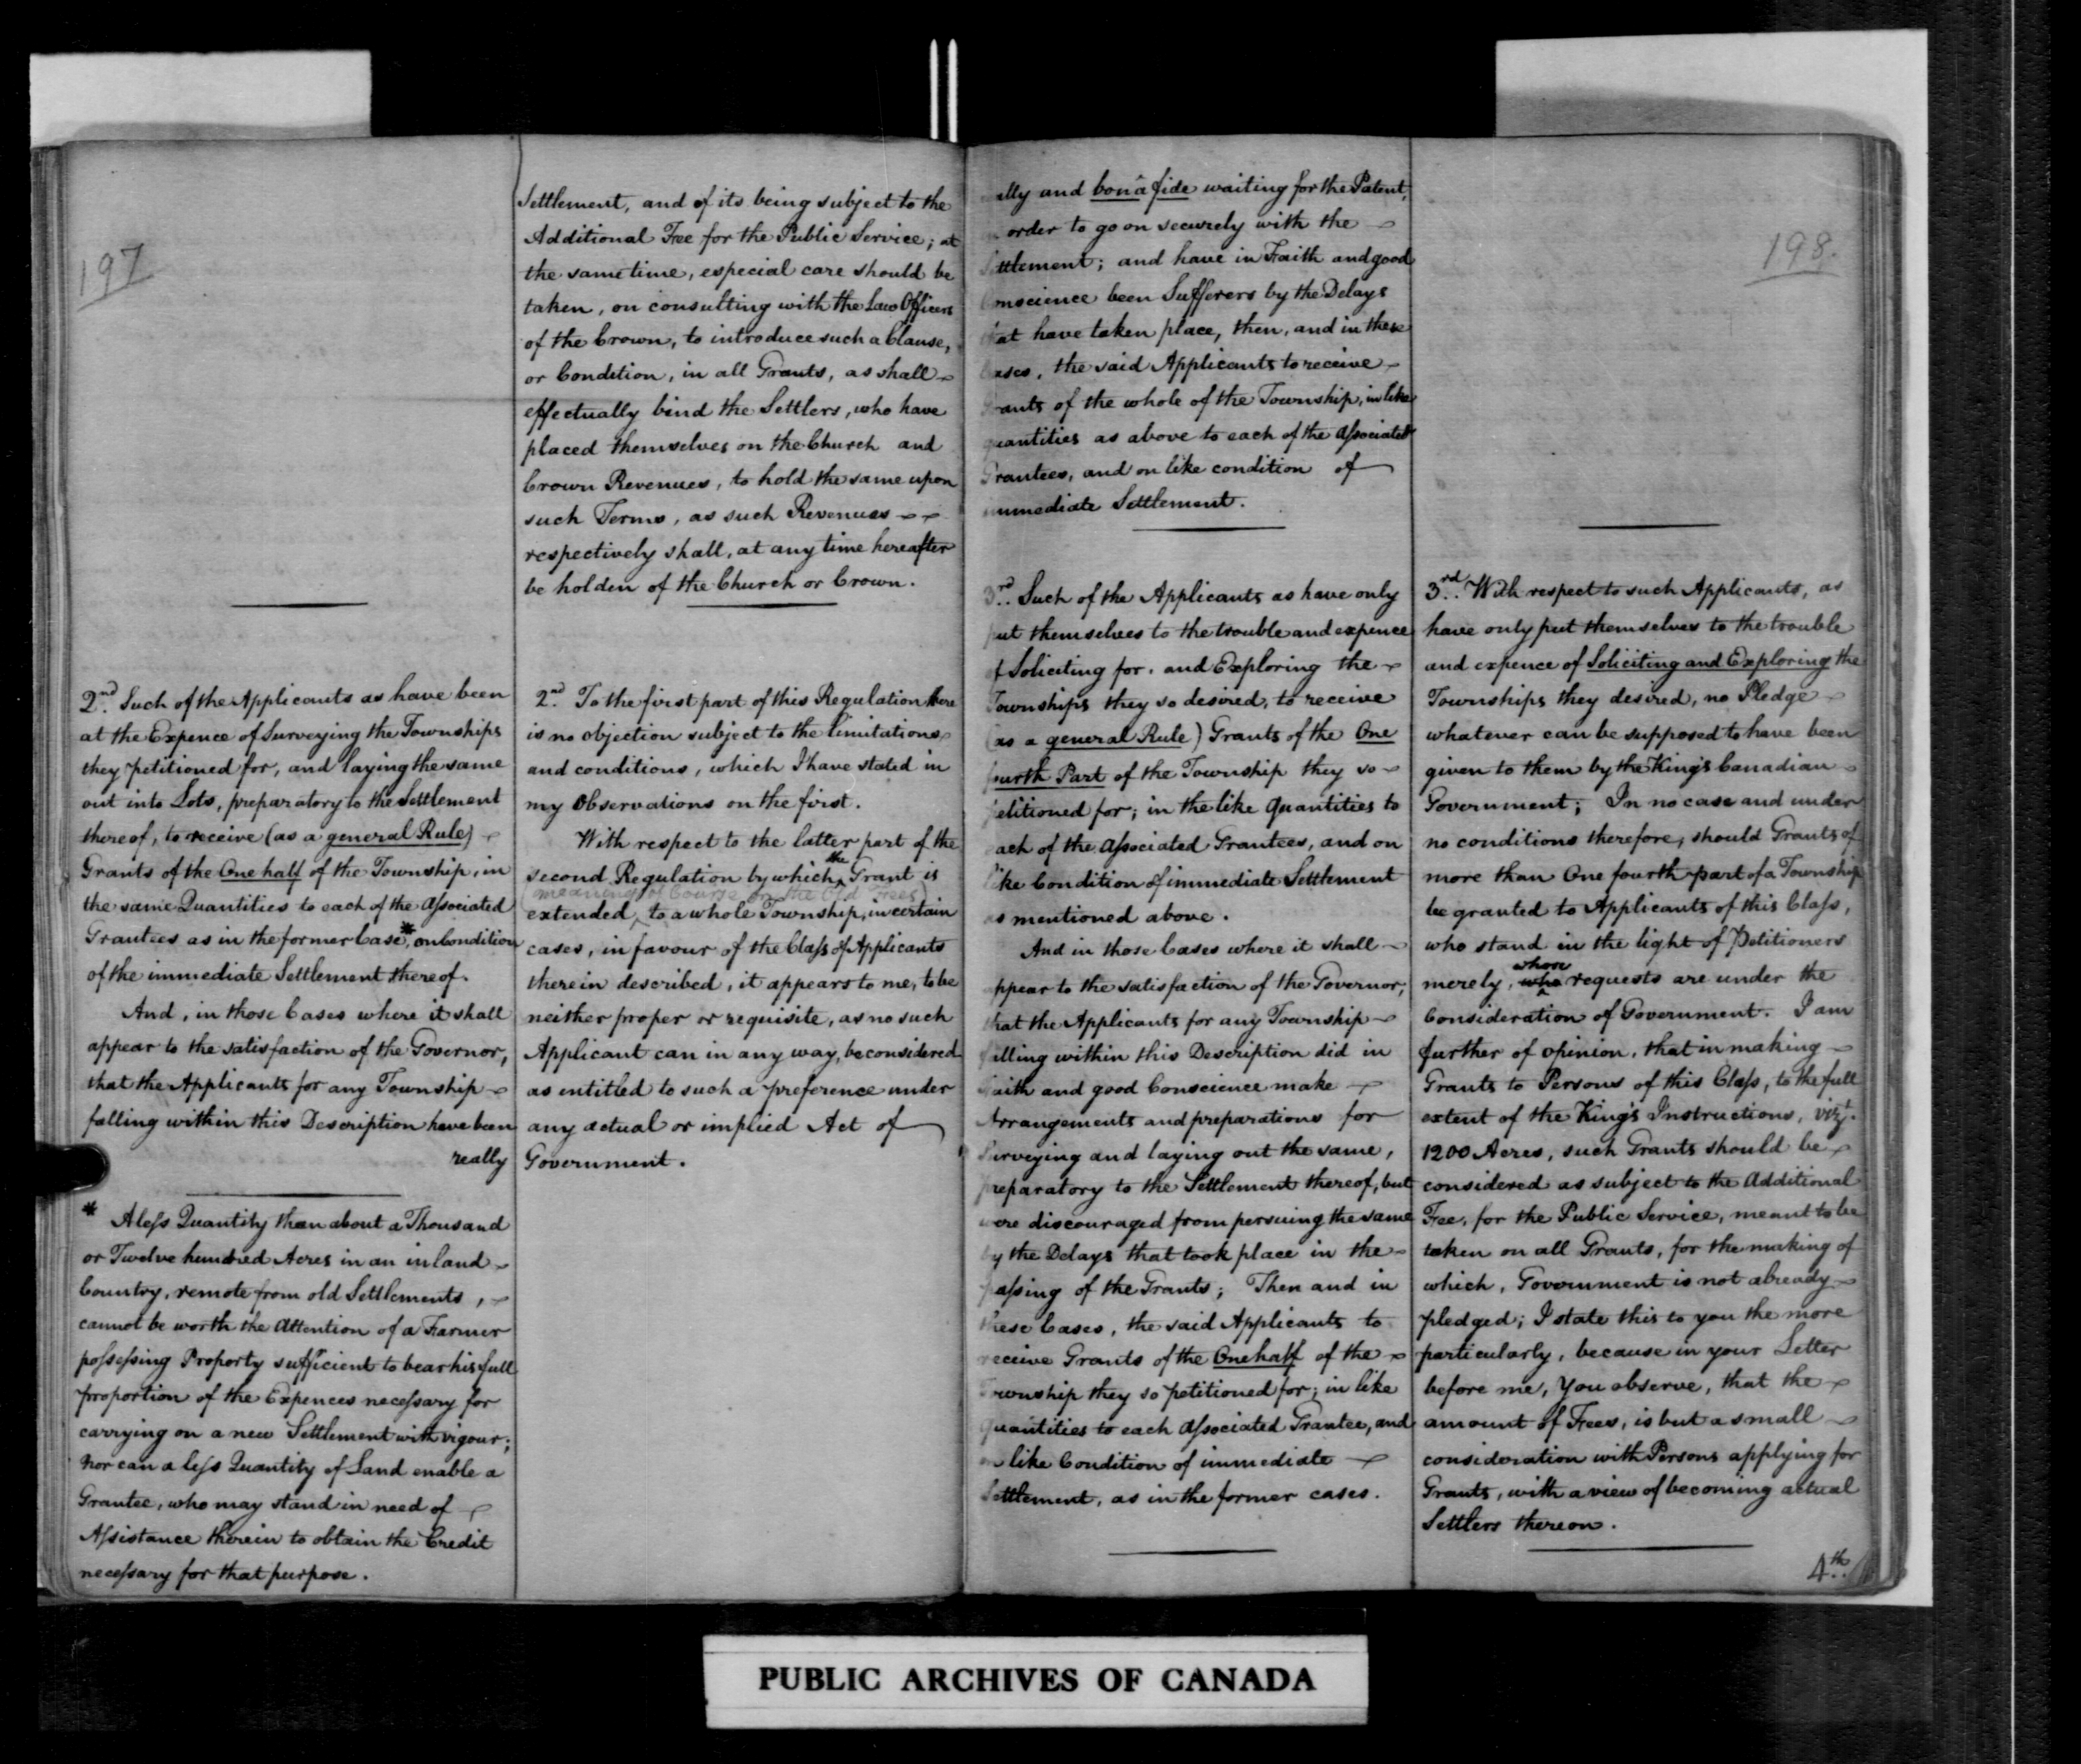 197
2nd. Such of the Applicants as have been
at the Expence of Surveying the Townships
they petitioned for, and laying the same
out into Lots, preparatory to the Settlement
thereof, to receive (as a general Rule)
Grants of the One half of the Township, in
the same Quantities to each of the Associated
Grantees as in the former Case*, on Condition
of the immediate Settlement thereof.
And, in those Cases where it shall
appear to the satisfaction of the Governor,
that the Applicants for any Township
falling within this Description have been
really
* A less Quantity than about a Thousand
or Twelve hundred Acres in an inland
Country, remote from old Settlements,
cannot be worth the Attention of a Farmer
possessing Property sufficient to bear his full
proportion of the Expences necessary for
carrying on a new Settlement with vigour;
Nor can a less Quantity of Land enable a
Grantee, who may stand in need of
Assistance therein to obtain the Credit
necessary for that purpose.
Settlement, and of its being subject to the
Additional Fee for the Public Service; at
the same time, especial care should be
taken, on consulting with the Law Officers
of the Crown, to introduce such a Clause,
or Condition, in all Grants, as shall
effectually bind the Settlers, who have
placed themselves on the Church and
Crown Revenues, to hold the same upon
such Terms, as such Revenues
respectively shall, at any time hereafter
be holden of the Church or Crown.
2nd. To the first part of this Regulation there
is no objection subject to the limitations
and conditions, which I have stated in
my Observations on the first.
With respect to the latter part of the
second Regulation by which the Grant is
(meaning of Course on the Old Fees)
extended, to a whole Township, in certain
cases, in favour of the Class of Applicants
therein described, it appears to me, to be
neither proper or requisite, as no such
Applicant can in any way, be considered
as entitled to such a preference under
any actual or implied Act of
Government.
ally and bonâ fide waiting for the Patent,
order to go on securely with the
Settlement; and have in Faith and good
Conscience been Sufferers by the Delays
that have taken place, then, and in these
Cases, the said Applicants to receive
Grants of the whole of the Township, in like
quantities as above to each of the Associated
Grantees, and on like condition of
immediate Settlement.
3rd. Such of the Applicants as have only
put themselves to the trouble and expence
of Soliciting for, and Exploring the
Townships they so desired, to receive
(as a general Rule) Grants of the One
fourth Part of the Township they so
petitioned for; in the like Quantities to
each of the Associated Grantees, and on
like Condition of immediate Settlement
as mentioned above.
And in those Cases where it shall
appear to the satisfaction of the Governor,
that the Applicants for any Township
falling within this Description did in
Faith and good Conscience make
Arrangements and preparations for
Surveying and laying out the same,
preparatory to the Settlement thereof, but
were discouraged from persuing the same
by the Delays that took place in the
passing of the Grants; Then and in
these Cases, the said Applicants to
receive Grants of the One half of the
Township they so petitioned for; in like
quantities to each Associated Grantee, and
on like Condition of immediate
Settlement, as in the former cases.
198.
3rd. With respect to such Applicants, as
have only put themselves to the trouble
and expence of Soliciting and Exploring the
Townships they desired, no Pledge
whatever can be supposed to have been
given to them by the King's Canadian
Government; In no case and under
no conditions therefore, should Grants of
more than One fourth part of a Township
be granted to Applicants of this Class,
who stand in the light of Petitioners
merely, who whose requests are under the
Consideration of Government. I am
further of opinion, that in making
Grants to Persons of this Class, to the full
extent of the King's Instructions, vizt.
1200 Acres, such Grants should be
considered as subject to the Additional
Fee, for the Public Service, meant to be
taken on all Grants, for the making of
which, Government is not already
pledged; I state this to you the more
particularly, because in your Letter
before me, You observe, that the
amount of Fees, is but a small
consideration with Persons applying for
Grants, with a view of becoming actual
Settlers thereon.
4th.
PUBLIC ARCHIVES OF CANADA